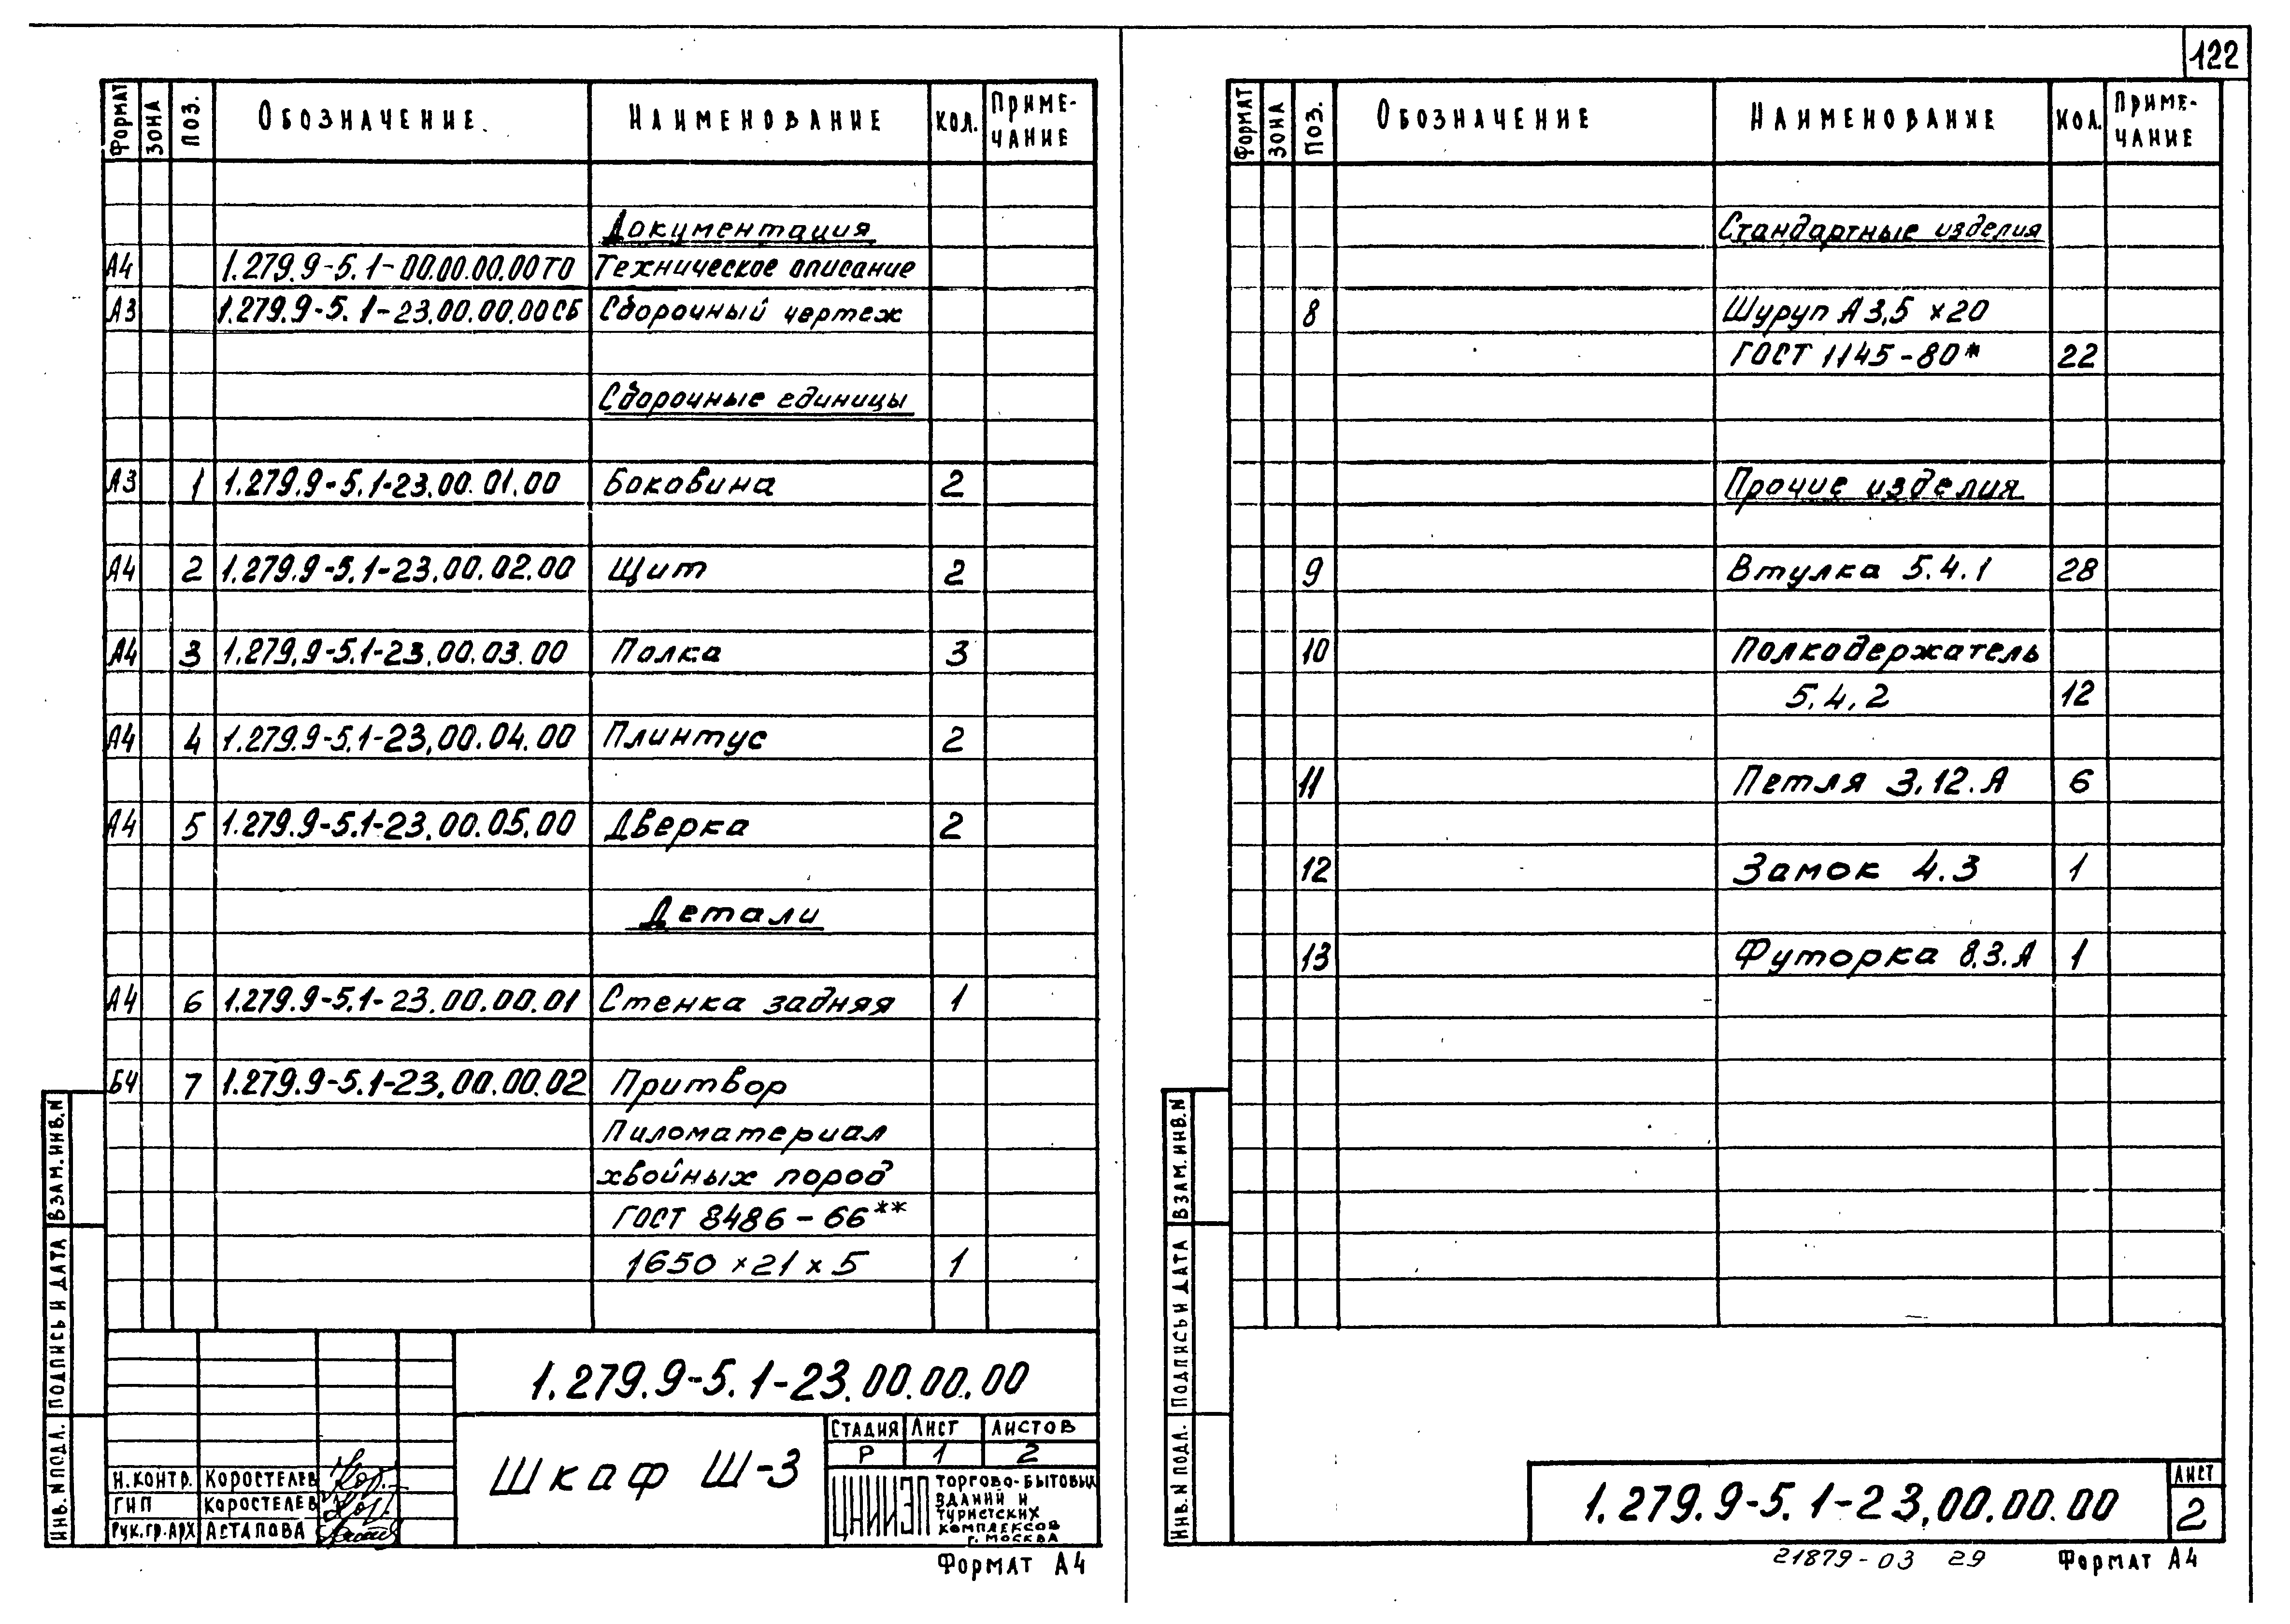 122
ФОРМАТ ЗОНА ПОЗ. ОБОЗНАЧЕНИЕ НАИМЕНОВАНИЕ КОЛ. ПРИМЕ-
ЧАНИЕ
Документация
А4 1.279.9-5.1-00.00.00.00ТО Техническое описание
А3 1.279.9-5.1-23.00.00.00СБ Сборочный чертеж
Сборочные единицы
А3 1 1.279.9-5.1-23.00.01.00 Боковина 2
А4 2 1.279.9-5.1-23.00.02.00 Щит 2
А4 3 1.279.9-5.1-23.00.03.00 Полка 3
А4 4 1.279.9-5.1-23.00.04.00 Плинтус 2
А4 5 1.279.9-5.1-23.00.05.00 Дверка 2
Детали
А4 6 1.279.9-5.1-23.00.00.01 Стенка задняя 1
Б4 7 1.279.9-5.1-23.00.00.02 Притвор
Пиломатериал
хвойных пород
ГОСТ 8486-66**
1650 х 21 х 5 1
ВЗАМ.ИНВ.N
ПОДПИСЬ И ДАТА
ИНВ.N ПОДЛ.
1.279.9-5.1-23.00.00.00
Шкаф Ш-3
СТАДИЯ ЛИСТ ЛИСТОВ
Р 1 2
Н.КОНТР. КОРОСТЕЛЕВ
ГИП КОРОСТЕЛЕВ
РУК.ГР.АРХ АСТАПОВА
ЦНИИЭП ТОРГОВО-БЫТОВЫХ
ЗДАНИЙ И
ТУРИСТСКИХ
КОМПЛЕКСОВ
Г. МОСКВА
ФОРМАТ А4
ФОРМАТ ЗОНА ПОЗ. ОБОЗНАЧЕНИЕ НАИМЕНОВАНИЕ КОЛ. ПРИМЕ-
ЧАНИЕ
Стандартные изделия
8 Шуруп А3,5 х 20
ГОСТ 1145-80* 22
Прочие изделия
9 Втулка 5.4.1 28
10 Полкодержатель
5.4.2 12
11 Петля 3.12.А 6
12 Замок 4.3 1
13 Футорка 8.3.А 1
ВЗАМ.ИНВ.N
ПОДПИСЬ И ДАТА
ИНВ.N ПОДЛ.
1.279.9-5.1-23.00.00.00
ЛИСТ
2
21879-03 29
ФОРМАТ А4